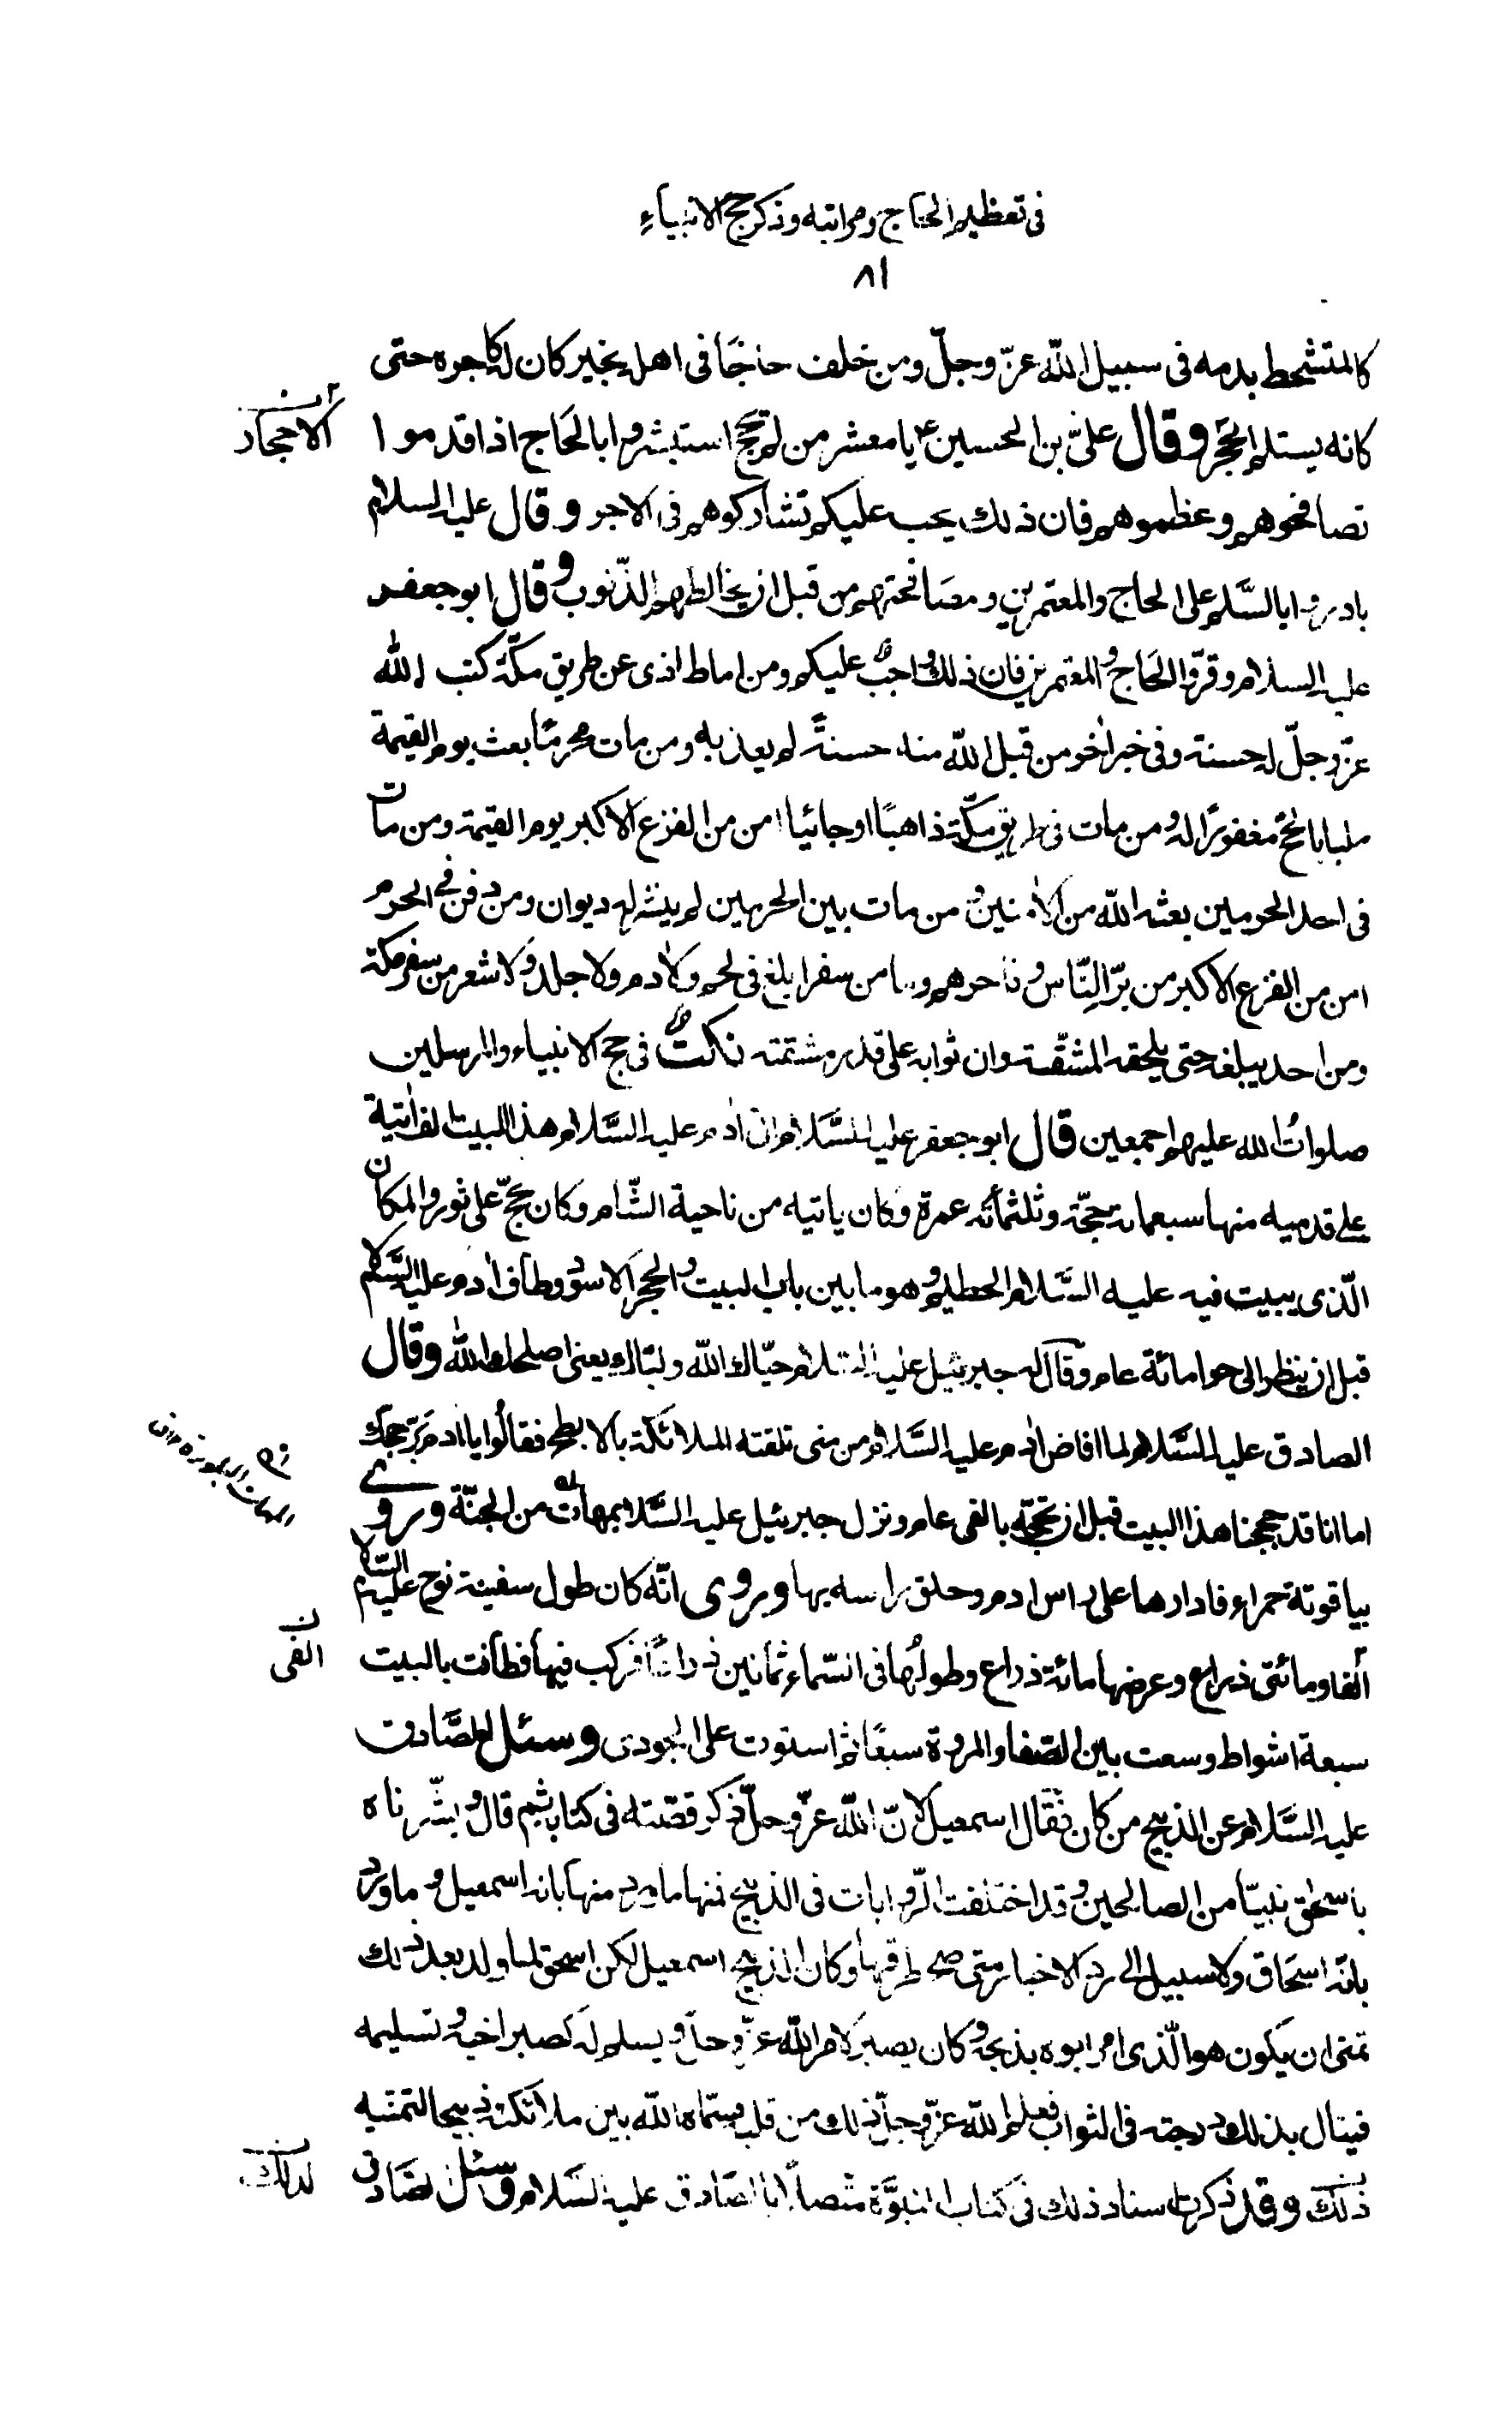 فى تعظيم الحاج ومراتبه وذكر حج الانبياء
٨١
كالمتشحط بدمه فى سبيل الله عزّ وجلّ ومن خلف حاجًا فى اهله بخير كان له كاجره حتى
كانه يستلم الحجر وقال علىّ بن الحسين ع يا معشر من لم يحج استبشروا بالحَاج اذا قدموا
الاحجار
تصافحوهم وعظموهم فان ذلك يجب عليكم تشاركوهم فى الاجر وقال عليه السلام
بادروا بالسَّلام على الحاج والمعتمرين ومصَافحتهم من قبل ان يخالطهم الذّنوب وقال ابو جعفر
عليه السلام وقرّوا الحَاج والمعتمرين فان ذلك واجبٌ عليكم ومن اماط اذى عن طريق مكّة كتب الله
عزّ وجلّ له حسنة وفى خبر اخر ومن قبل الله منه حسنةً لم يعذبه ومن مات محرمًا بعث يوم القيمة
ملبيا بالحجّ مغفورًا له ومن مات فى طريق مكّة ذاهبًا او جائيا امن من الفزع الاكبر يوم القيمة ومن مات
فى احد الحرمين بعثه الله من الآمنين ومن مات بين الحرمين لم ينشر له ديوان ومن دفن فى الحرم
امن من الفزع الاكبر من برّ النّاس وفاجرهم وما من سفر ابلغ فى لحم ولا دم ولا جلد ولا شعر من سفر مكة
وما من احد يبلغه حتى يلحقه المشقّة وان ثوابه على قدر مشقته نكتٌ فى حج الانبياء والمرسلين
صلواتُ الله عليهم اجمعين قال ابو جعفر عليه السَّلام ان آدم عليه السَّلام هذا البيت الف اتية
على قدميه منها سبعمائة حجّة وثلثمائه عمرة وكان ياتيه من ناحية الشّام وكان يحجّ على ثور والمكان
الّذى يبيت فيه عليه السَّلام الحطيم وهو ما بين باب البيت والحجر الاسود وطاف آدم عليه السَّلام
قبل ان ينظر الى حوا مائة عام وقال له جبرئيل عليه السَّلام حيّاك الله ولبّاك يعنى اصلحك الله وقال
الصادق عليه السَّلام لما افاض آدم عليه السَّلام من منى تلقته الملائكة بالابطح فقالُوا يا آدم بَرّ حجك
اما انا قد حججنا هذا البيت قبل ان تحجّه بالفى عام ونزل جبرئيل عليه السَّلام بمهاة من الجنّة وروى
بياقوتة حمراء فادارها على راس آدم وحلق راسه بها وروى انّه كان طول سفينة نوح عليه السّلام
الفا ومائتى ذراع وعرضها مائة ذراع وطولُها فى السّماء ثمانين ذراعًا فركب فيها فطافت بالبيت
الفى
سبعة اشواط وسعت بين الصفا والمروة سبعًا ثم استوت على الجودى وسئل الصَّادق
عليه السَّلام عن الذبيح من كان فقال اسمعيل لانّ الله عزّ وجلّ ذكر قصّته فى كتابه ثم قال وبشّرناه
باسحق نبيّا من الصالحين وقد اختلفت الرّوايات فى الذبيح فمنها ما ورد منها بانه اسمعيل وما ورد
بانّه اسحَاق ولا سبيل الى ردّ الاخبار متى صحّ طرقها وكان الذبيح اسمعيل لكن اسحق لما ولد بعد ذلك
تمنّى ان يكون هو الّذى امر ابوه بذبحه وكان يصبر لامر الله عزّ وجلّ ويسلم له كصبر اخيه وتسليمه
فينال بذلك درجته فى الثواب فعلم الله عزّ وجلّ ذلك من قلبه فسمّاه الله بين ملائكته ذبيحا لتمنيه
ذلك وقد ذكرت اسناد ذلك فى كتاب النبوّة متّصلًا بالصّادق عليه السَّلام وسئل الصَّادق
لذلك